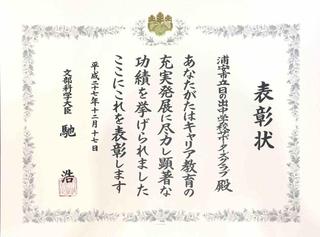 表彰状
浦安市立日の出中学校ボーイズクラブ 殿
あなたがたはキャリア教育の
充実発展に尽力し顕著な
功績を挙げられました
ここにこれを表彰します
平成二十七年十二月十七日
文部科学大臣 馳 浩